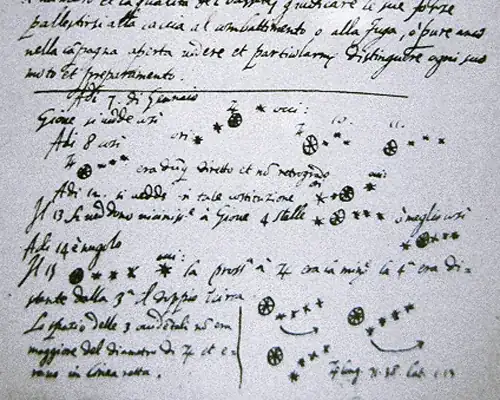 et la qualità del Vassello giudicare le sue forze
pallestirsi alla caccia al combattimento o alla fuga, o pure anco
nella capagna aperta vedere et particolarmte distinguere ogni suo
moto et preparamento.
Adi 7. di Gennaio
Gione si vedde così occi:
Adi 8 così ori 10. 11.
era dunq diretto et nõ retrogrado
Adi 12. si vedde in tale costitutione ori occi:
Il 13 si veddono vicinissime à Giove 4 stelle ò meglio così
Adi 14 è nugolo
Il 15 occi: la prossa à 4 era la mina la 4a era di=
stante dalla 3a il doppio Incirca
Lo spatio delle 3 occidentali nõ era
maggiore del diametro di 4 et e=
rano in linea retta.
long. 71.38 lat. 1.13